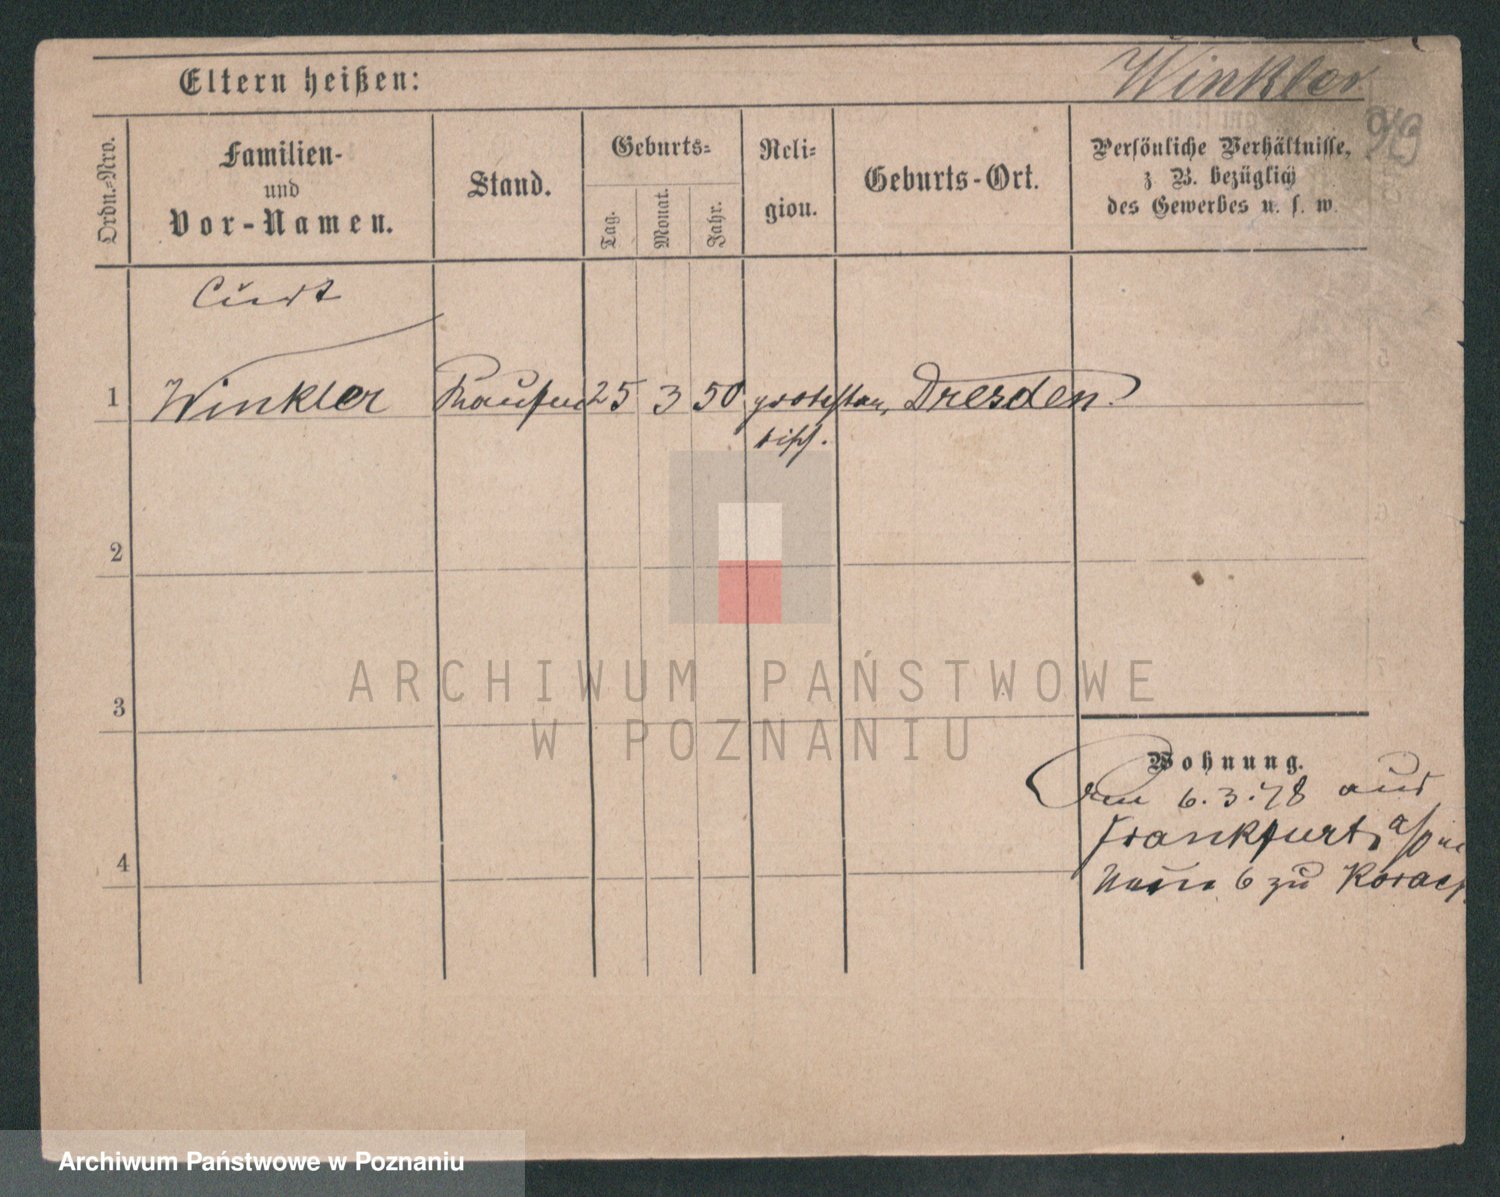 Eltern heißen:
Winkler
Ordn.-Nro.
Familien-
und
Vor-Namen.
Stand.
Geburts-
Tag.
Monat.
Jahr.
Reli-
gion.
Geburts-Ort.
Persönliche Verhältnisse,
z B. bezüglich
des Gewerbes u. s. w.
Curt
1 Winkler 25 3 50 protestan, Dresden.
tisch.
2
3
4
Wohnung.
Am 6.3.78 aus
Frankfurt a/O
6 zu
ARCHIWUM PAŃSTWOWE
W POZNANIU
Archiwum Państwowe w Poznaniu